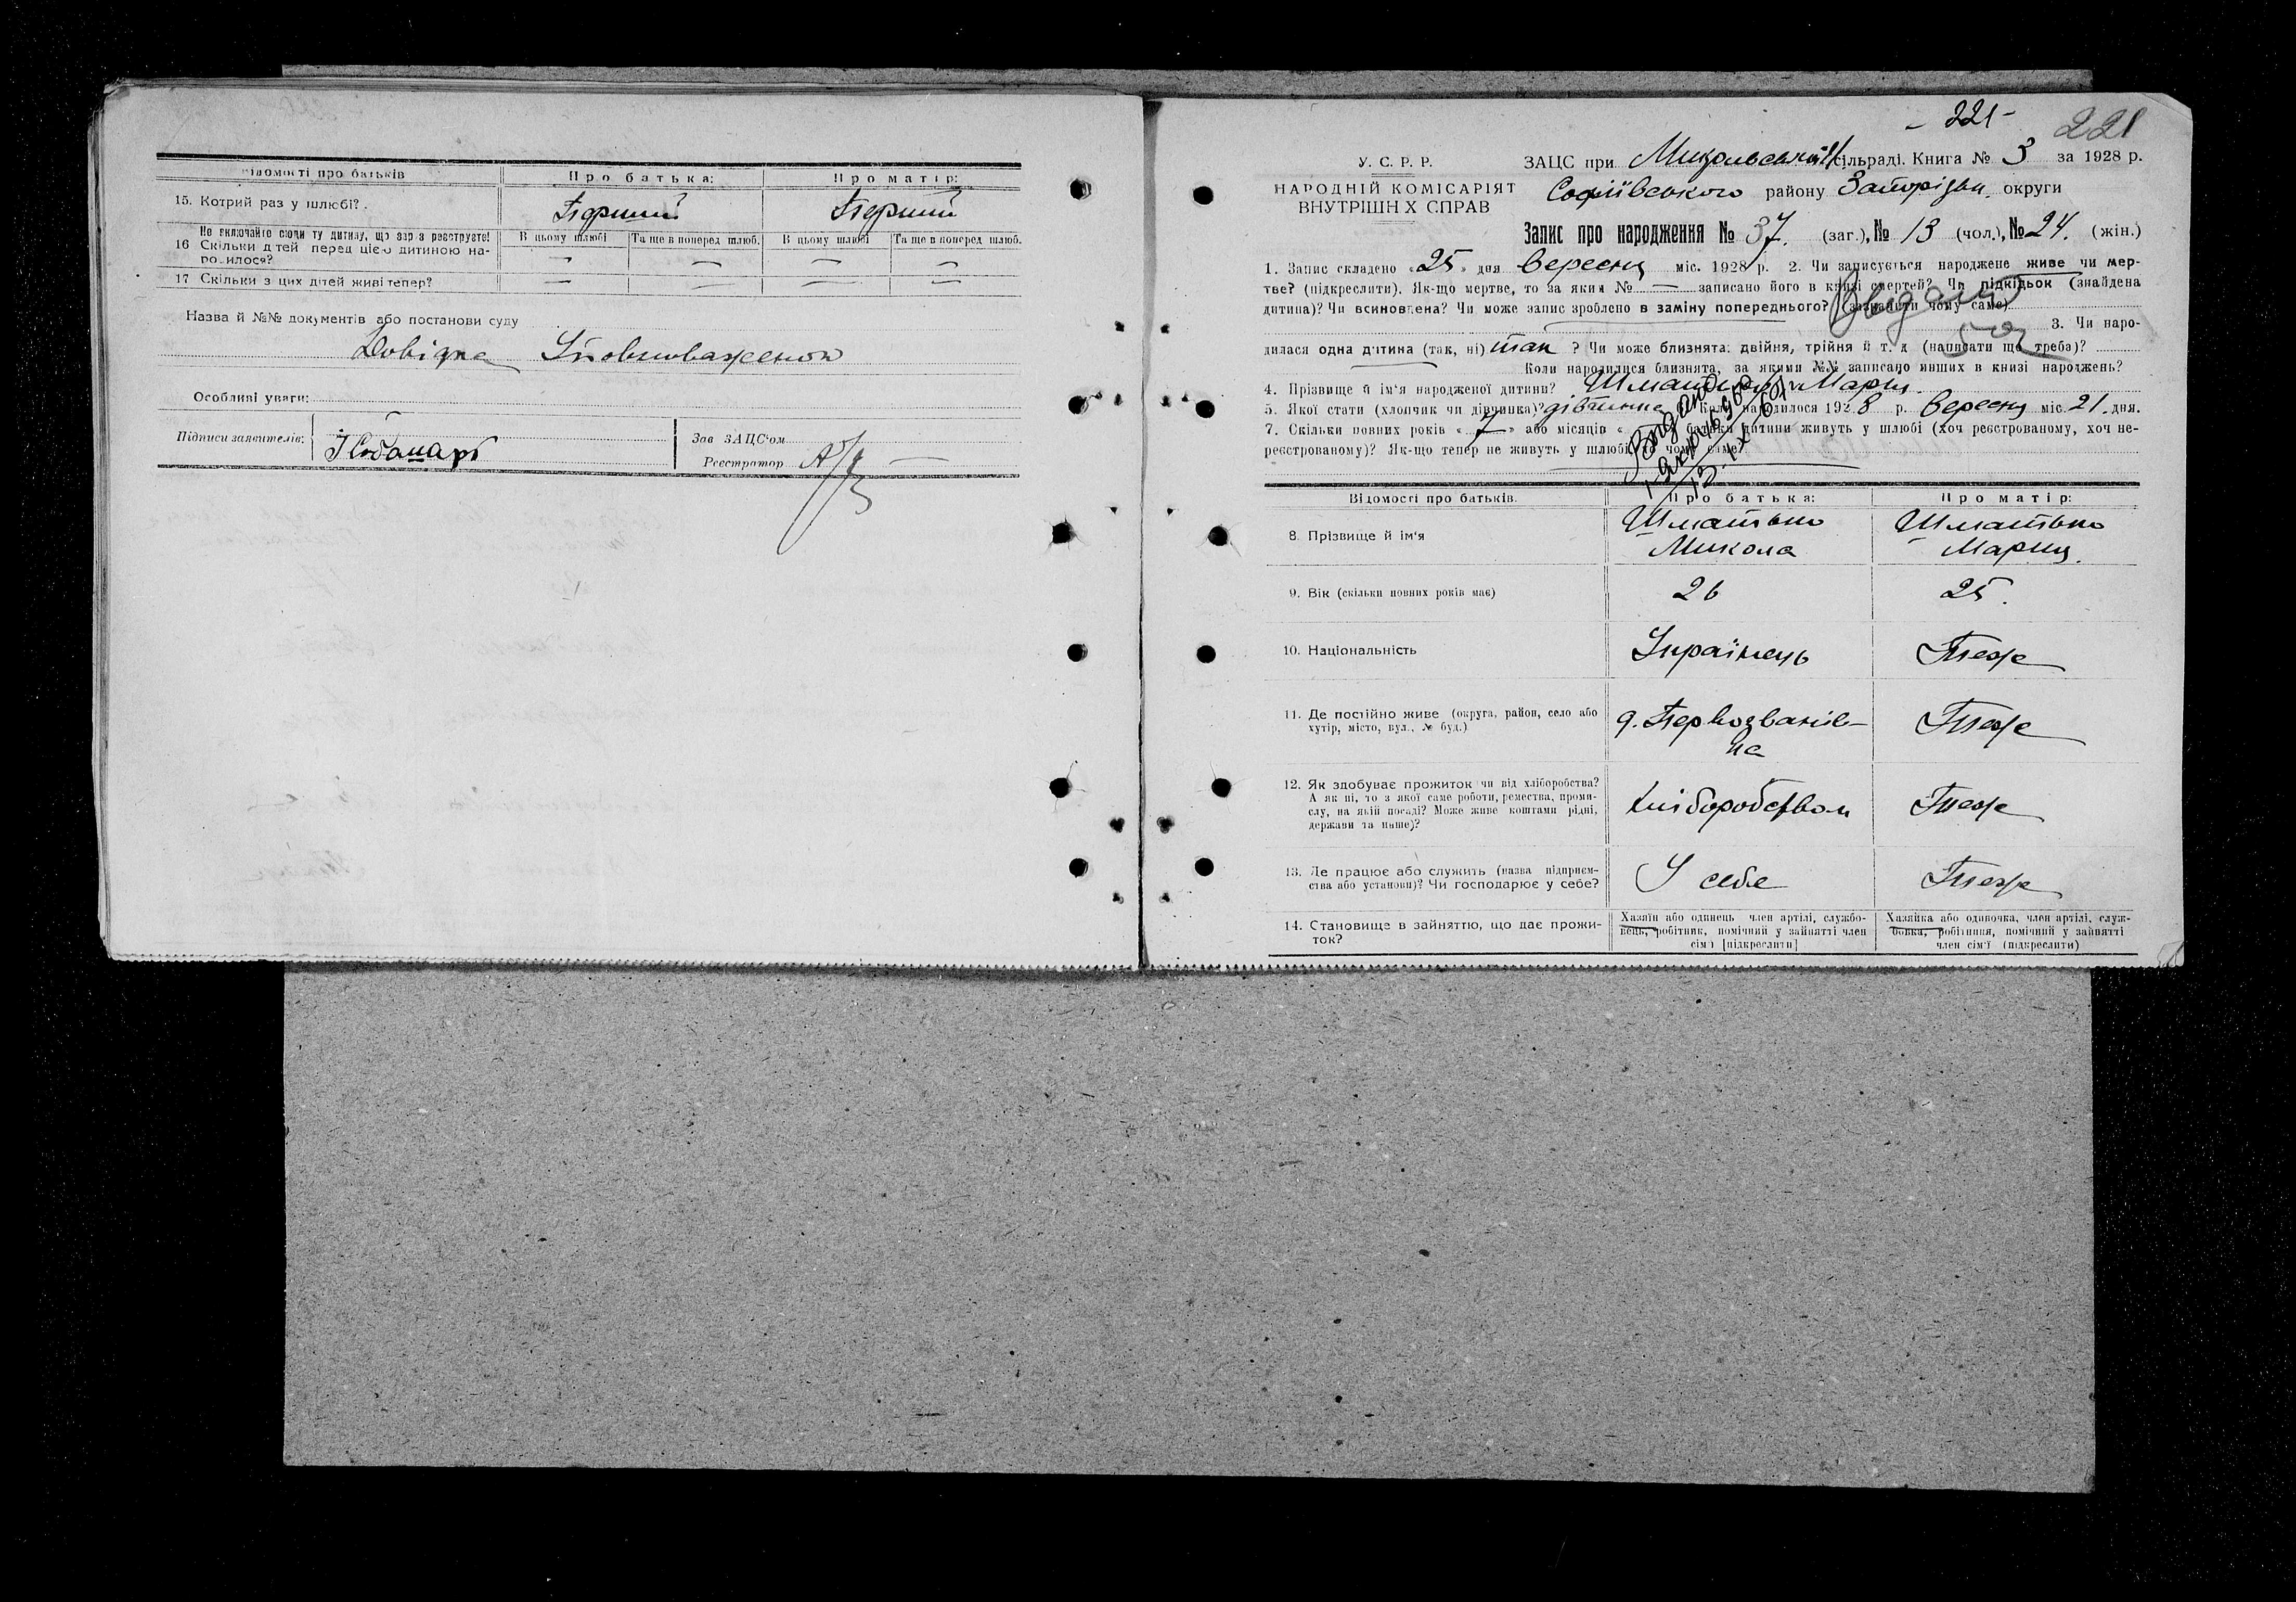 Відомості про батьків
Про батька:
Про матір:
15. Котрий раз у шлюбі?
Перший
Перший
Не включайте сюди ту дитину, що зараз реєструєте!
16 Скільки дітей перед цією дитиною на-
родилося?
В цьому шлюбі
Та ще в поперед. шлюб.
В цьому шлюбі
Та ще в поперед. шлюб.
— — — —
17 Скільки з цих дітей живі тепер?
— — — —
Назва й №№ документів або постанови суду
Довідка Уповноваженого
Особливі уваги:
Підписи заявителів:
Зав ЗАЦС'ом
Реєстратор
- 221 -
221
У. С. Р. Р.
НАРОДНІЙ КОМІСАРІЯТ
ВНУТРІШНІХ СПРАВ
ЗАЦС при сільраді. Книга № 3 за 1928 р.
Софіївського району Запорізьк. округи
Запис про народження № 37. (заг.), № 13 (чол.), № 24. (жін.)
1. Запис складено «25» дня вересня міс. 1928 р. 2. Чи записується народжене живе чи мер-
тве? (підкреслити). Як-що мертве, то за яким № — записано його в книзі смертей? Чи підкідьок (знайдена
дитина)? Чи всиновлена? Чи може запис зроблено в заміну попереднього? (зазначити чому саме)
3. Чи наро-
дилася одна дитина (так, ні) так ? Чи може близнята: двійня, трійня й т. д. (написати що треба)?
Коли народилися близнята, за якими №№ записано инших в книзі народжень?
4. Прізвище й ім'я народженої дитини? Шматько Мария.
5. Якої стати (хлопчик чи дівчинка)? дівчинка Коли народилося 1928 р. вересня міс. 21 дня.
7. Скільки повних років « » або місяців « батьки дитини живуть у шлюбі (хоч реєстрованому, хоч не-
реєстрованому)? Як-що тепер не живуть у шлюбі, то чому саме
Відомості про батьків.
Про батька:
Про матір:
8. Прізвище й ім'я
Шматько
Микола
Шматько
Мария.
9. Вік (скільки повних років має)
26
25.
10. Національність
Українець
Теже
11. Де постійно живе (округа, район, село або
хутір, місто, вул., № буд.)
д. Первозванів-
ка
Теже
12. Як здобуває прожиток чи від хліборобства?
А як ні, то з якої саме роботи, ремества, проми-
слу, на якій посаді? Може живе коштами рідні,
держави та инше)?
Хліборобством
Теже
13. Де працює або служить (назва підприєм-
ства або установи)? Чи господарює у себе?
У себе
Теже
14. Становище в зайняттю, що дає прожи-
ток?
Хазяїн або одинець член артілі, службо-
вець, робітник, помічний у зайнятті член
сім'ї [підкреслити]
Хазяйка або одиночка, член артілі, служ-
бовка, робітниця, помічний у зайнятті
член сім'ї (підкреслити)